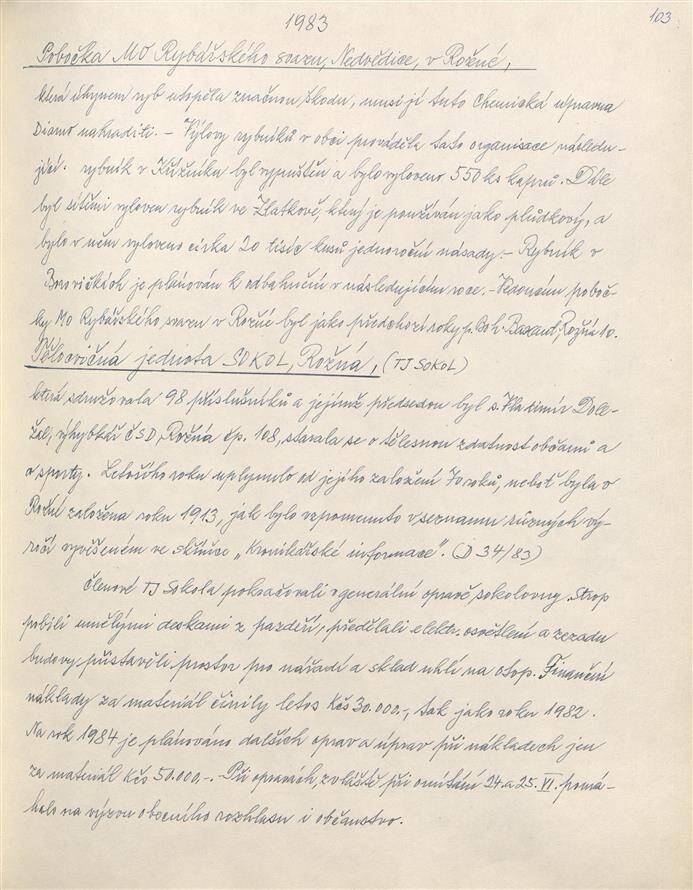 1983
103
Pobočka MO Rybářského svazu, Nedvědice, v Rožné,
která úhynem ryb utopěla značnou škodu, musí jí tuto Chemická úpravna
Diamo nahraditi. – Výlovy rybníků v obci prováděla tato organisace následu-
jící: rybník v Křížníku byl vypuštěn a bylo vyloveno 550 ks kaprů. Dále
byl sítěmi vyloven rybník ve Zlatkově, který je používán jako plůdkový, a
bylo v něm vyloveno cirka 20 tisíc kusů jednoroční násady. – Rybník v
Borovičkách je plánován k odbahnění v následujícím roce. – Vedoucím poboč-
ky MO Rybářského svazu v Rožné byl jako předchozí roky p. Boh. Rožná 10.
Tělocvičná jednota SOKOL, Rožná, (TJ SOKOL)
která sdružovala 98 příslušníků a jejímž předsedou byl s. Vlatimír Dole-
žal, výhybkář ČSD, Rožná čp. 108, starala se o tělesnou zdatnost občanů a
o sporty. Letošího roku uplynulo od jejího založení 70 roků, neboť byla v
Rožné založena roku 1913, jak bylo vzpomenuto v seznamu různých vý-
ročí vyvěšeném ve skřínce „Kronikářské informace“. (D 34/83)
Členové TJ Sokola pokračovali v generální opravě sokolovny. Strop
pobili umělými deskami z pazdeří, předělali elektr. osvětlení a zezadu
budovy přistavěli prostor pro nářadí a sklad uhlí na otop. Finanční
náklady za materiál činily letos Kčs 30.000.-, tak jako roku 1982.
Na rok 1984 je plánováno dalších oprav a úprav při nákladech jen
za materiál Kčs 50.000.-. Při opravách, zvláště při omítání 24. a 25. VI. pomá-
halo na výzvu obecního rozhlasu i občanstvo.